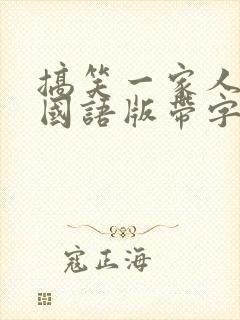 搞笑一家人
國語版帶字
寇正海